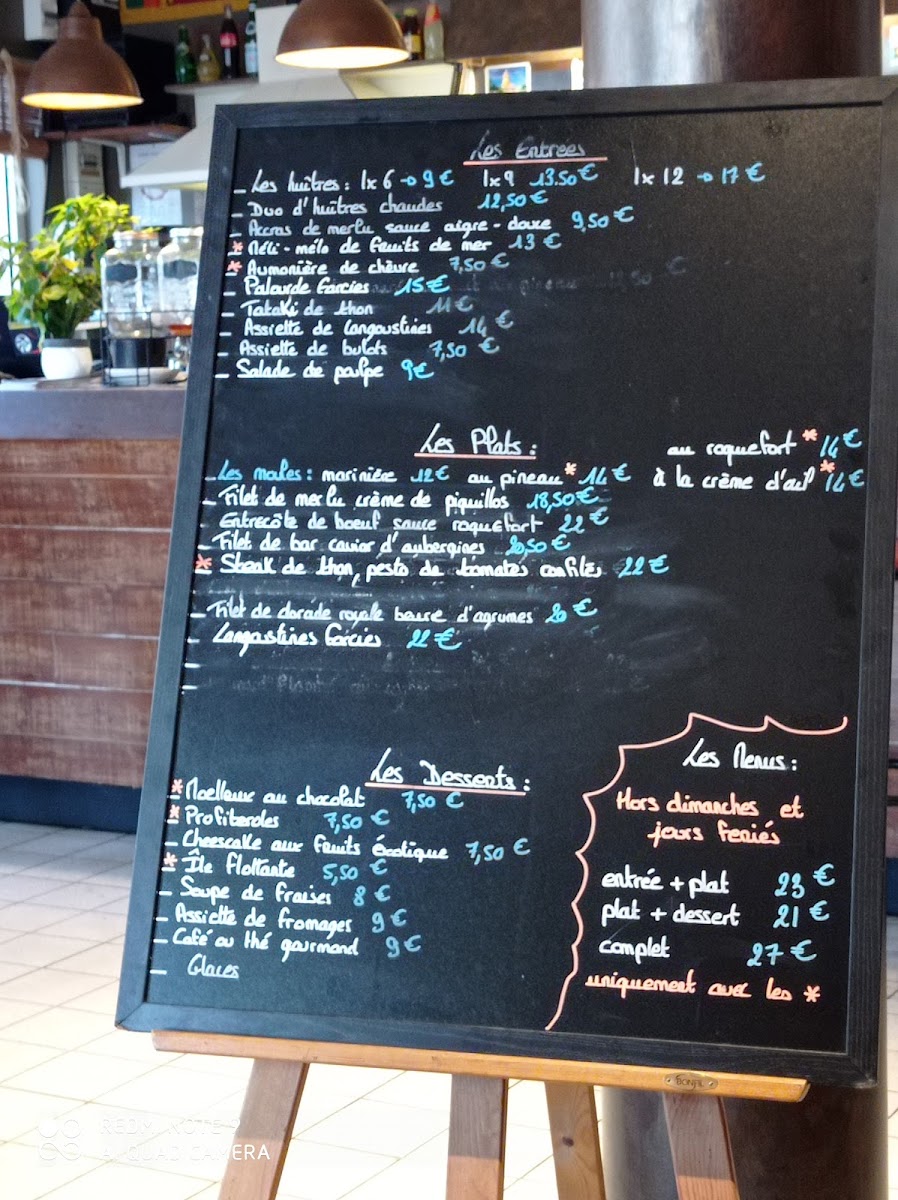 Les Entrées
- Les huîtres : 1x6 → 9€ 1x9 13.50€ 1x12 → 17€
- Duo d'huîtres chaudes 12,50€
- Accras de merlu sauce aigre-douce 9,50€
* Méli-mélo de fruits de mer 13€
* Aumonière de chèvre 7,50€
- Palourde farcies 15€
- Tataki de thon 11€
- Assiette de langoustines 14€
- Assiette de bulots 7,50€
- Salade de poulpe 9€
Les Plats :
au roquefort * 14€
- Les moules : marinière 12€ au pineau * 14€ à la crème d'ail * 14€
- Filet de merlu crème de piquillos 18,50€
- Entrecôte de boeuf sauce roquefort 22€
- Filet de bar caviar d'aubergines 20,50€
* Steak de thon, pesto de tomates confites 22€
- Filet de dorade royale beurre d'agrumes 20€
- Langoustines farcies 22€
Les Desserts :
* Moelleux au chocolat 7,50€
* Profiteroles 7,50€
- Cheescake aux fruits éxotique 7,50€
* Île flottante 5,50€
- Soupe de fraises 8€
- Assiette de fromages 9€
- Café ou thé gourmand 9€
- Glaces
Les Menus :
Hors dimanches et
jours feriés
entrée + plat 23€
plat + dessert 21€
complet 27€
uniquement avec les *
BONFIL
REDMI NOTE 9
AI QUAD CAMERA